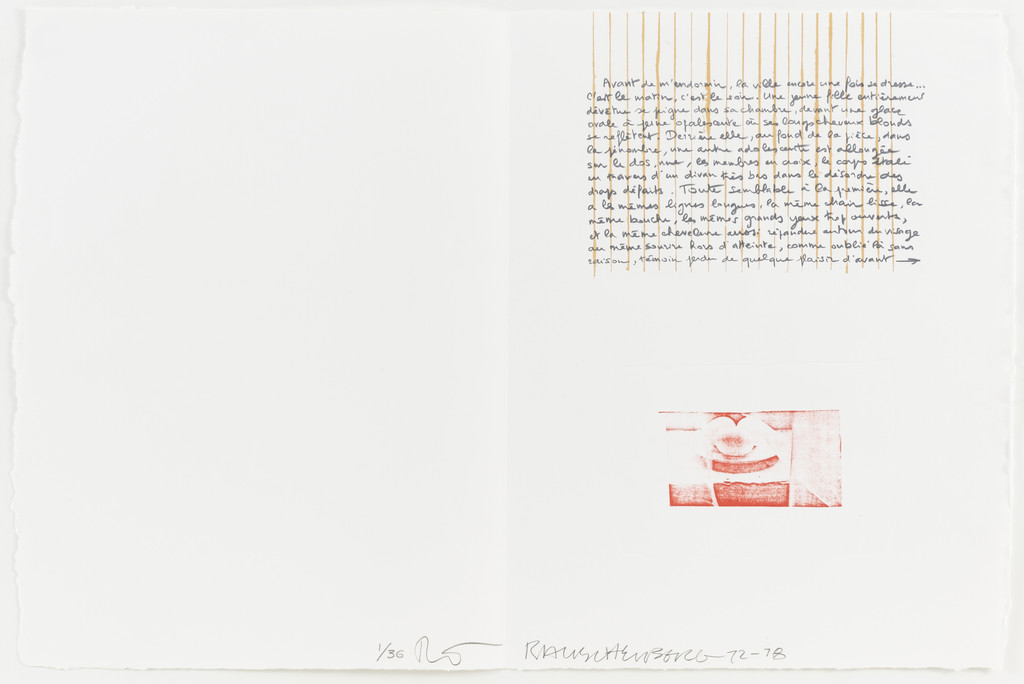 Avant de m'endormir, la ville encore une fois se dresse...
C'est le matin, c'est le soir. Une jeune fille entièrement
dévêtue se peigne dans sa chambre, devant une glace
ovale à peine opalescente où ses longs cheveux blonds
se reflètent. Derrière elle, au fond de la pièce, dans
la pénombre, une autre adolescente est allongée
sur le dos, nue, les membres en croix, le corps étalé
en travers d'un divan très bas dans le désordre des
draps défaits. Toute semblable à la première, elle
a les mêmes lignes longues, la même chair lisse, la
même bouche, les mêmes grands yeux trop ouverts,
et la même chevelure aussi répandue autour du visage
au même sourire hors d'atteinte, comme oublié là sans
raison, témoin perdu de quelque plaisir d'avant →
1/36 RAUSCHENBERG 72-78